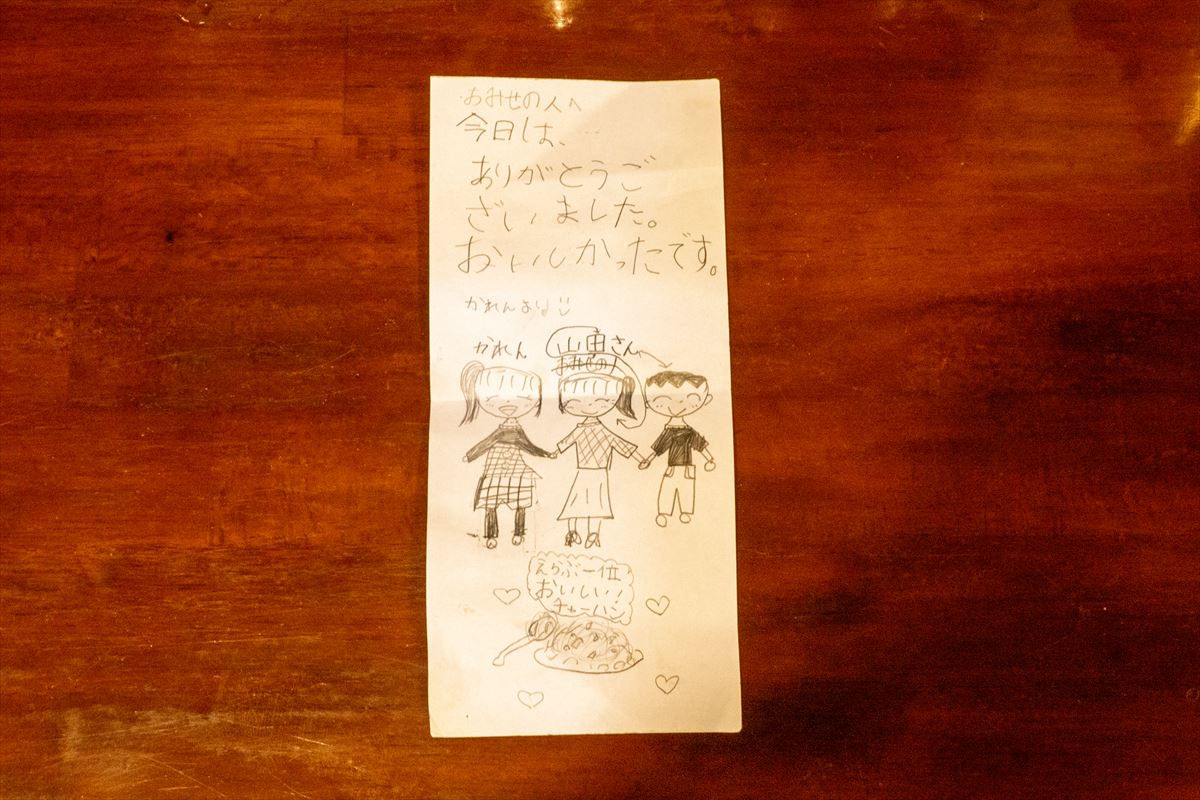 おみせの人へ
今日は、
ありがとうご
ざいました。
おいしかったです。
かれんより
かれん
山田さん
おみせの人
えらぶ一位
おいしい！
チャーハン